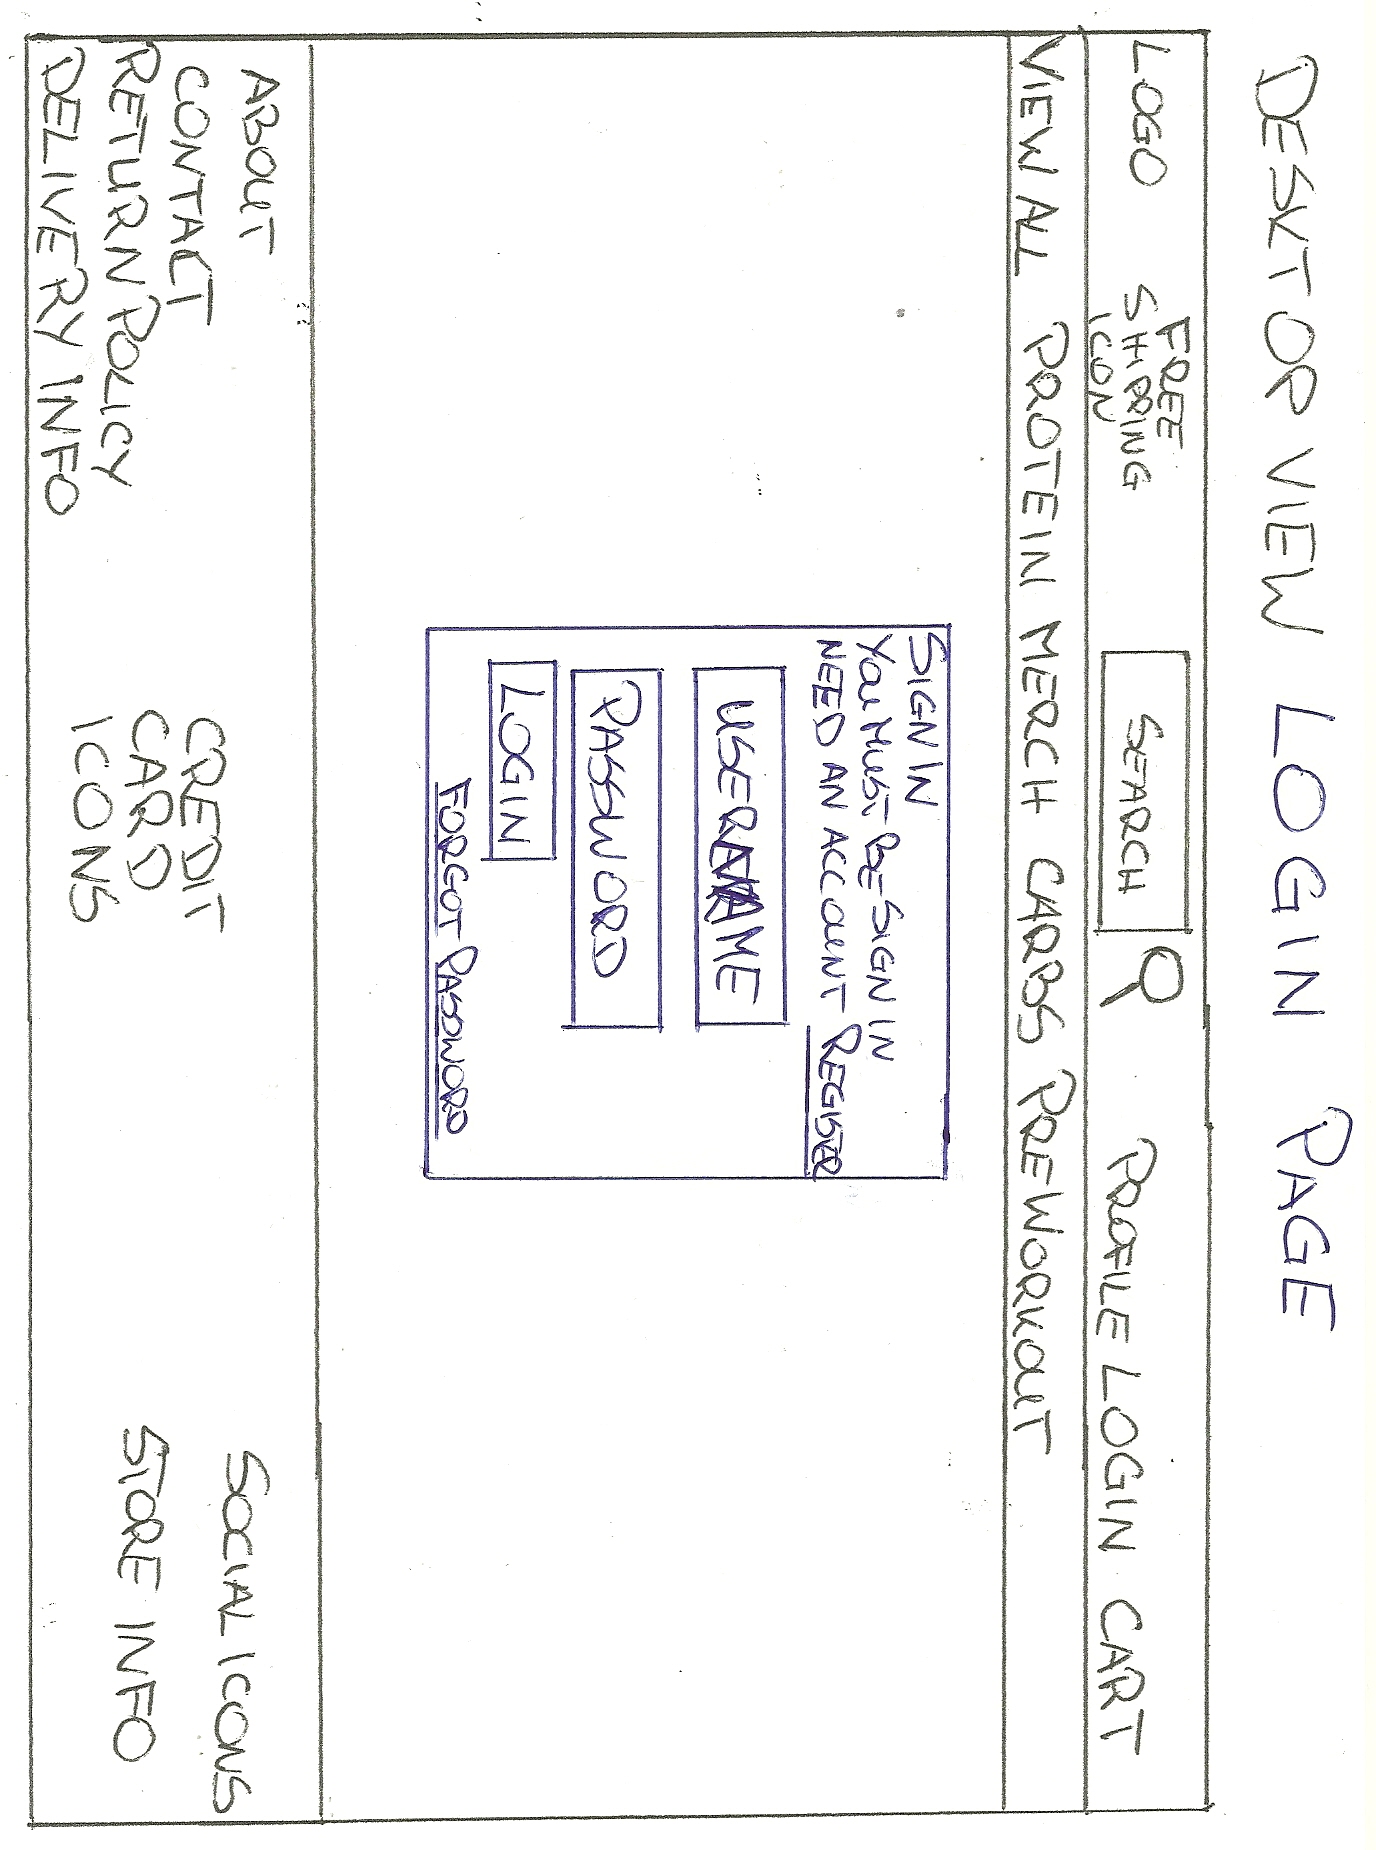 DESKTOP VIEW LOGIN PAGE
LOGO
FREE
SHIPPING
ICON
SEARCH
PROFILE LOGIN CART
VIEW ALL PROTEIN MERCH CARBS PREWORKOUT
SIGN IN
YOU MUST BE SIGN IN
NEED AN ACCOUNT REGISTER
USERNAME
PASSWORD
LOGIN
FORGOT PASSWORD
ABOUT
CONTACT
RETURN POLICY
DELIVERY INFO
CREDIT
CARD
ICONS
SOCIAL ICONS
STORE INFO